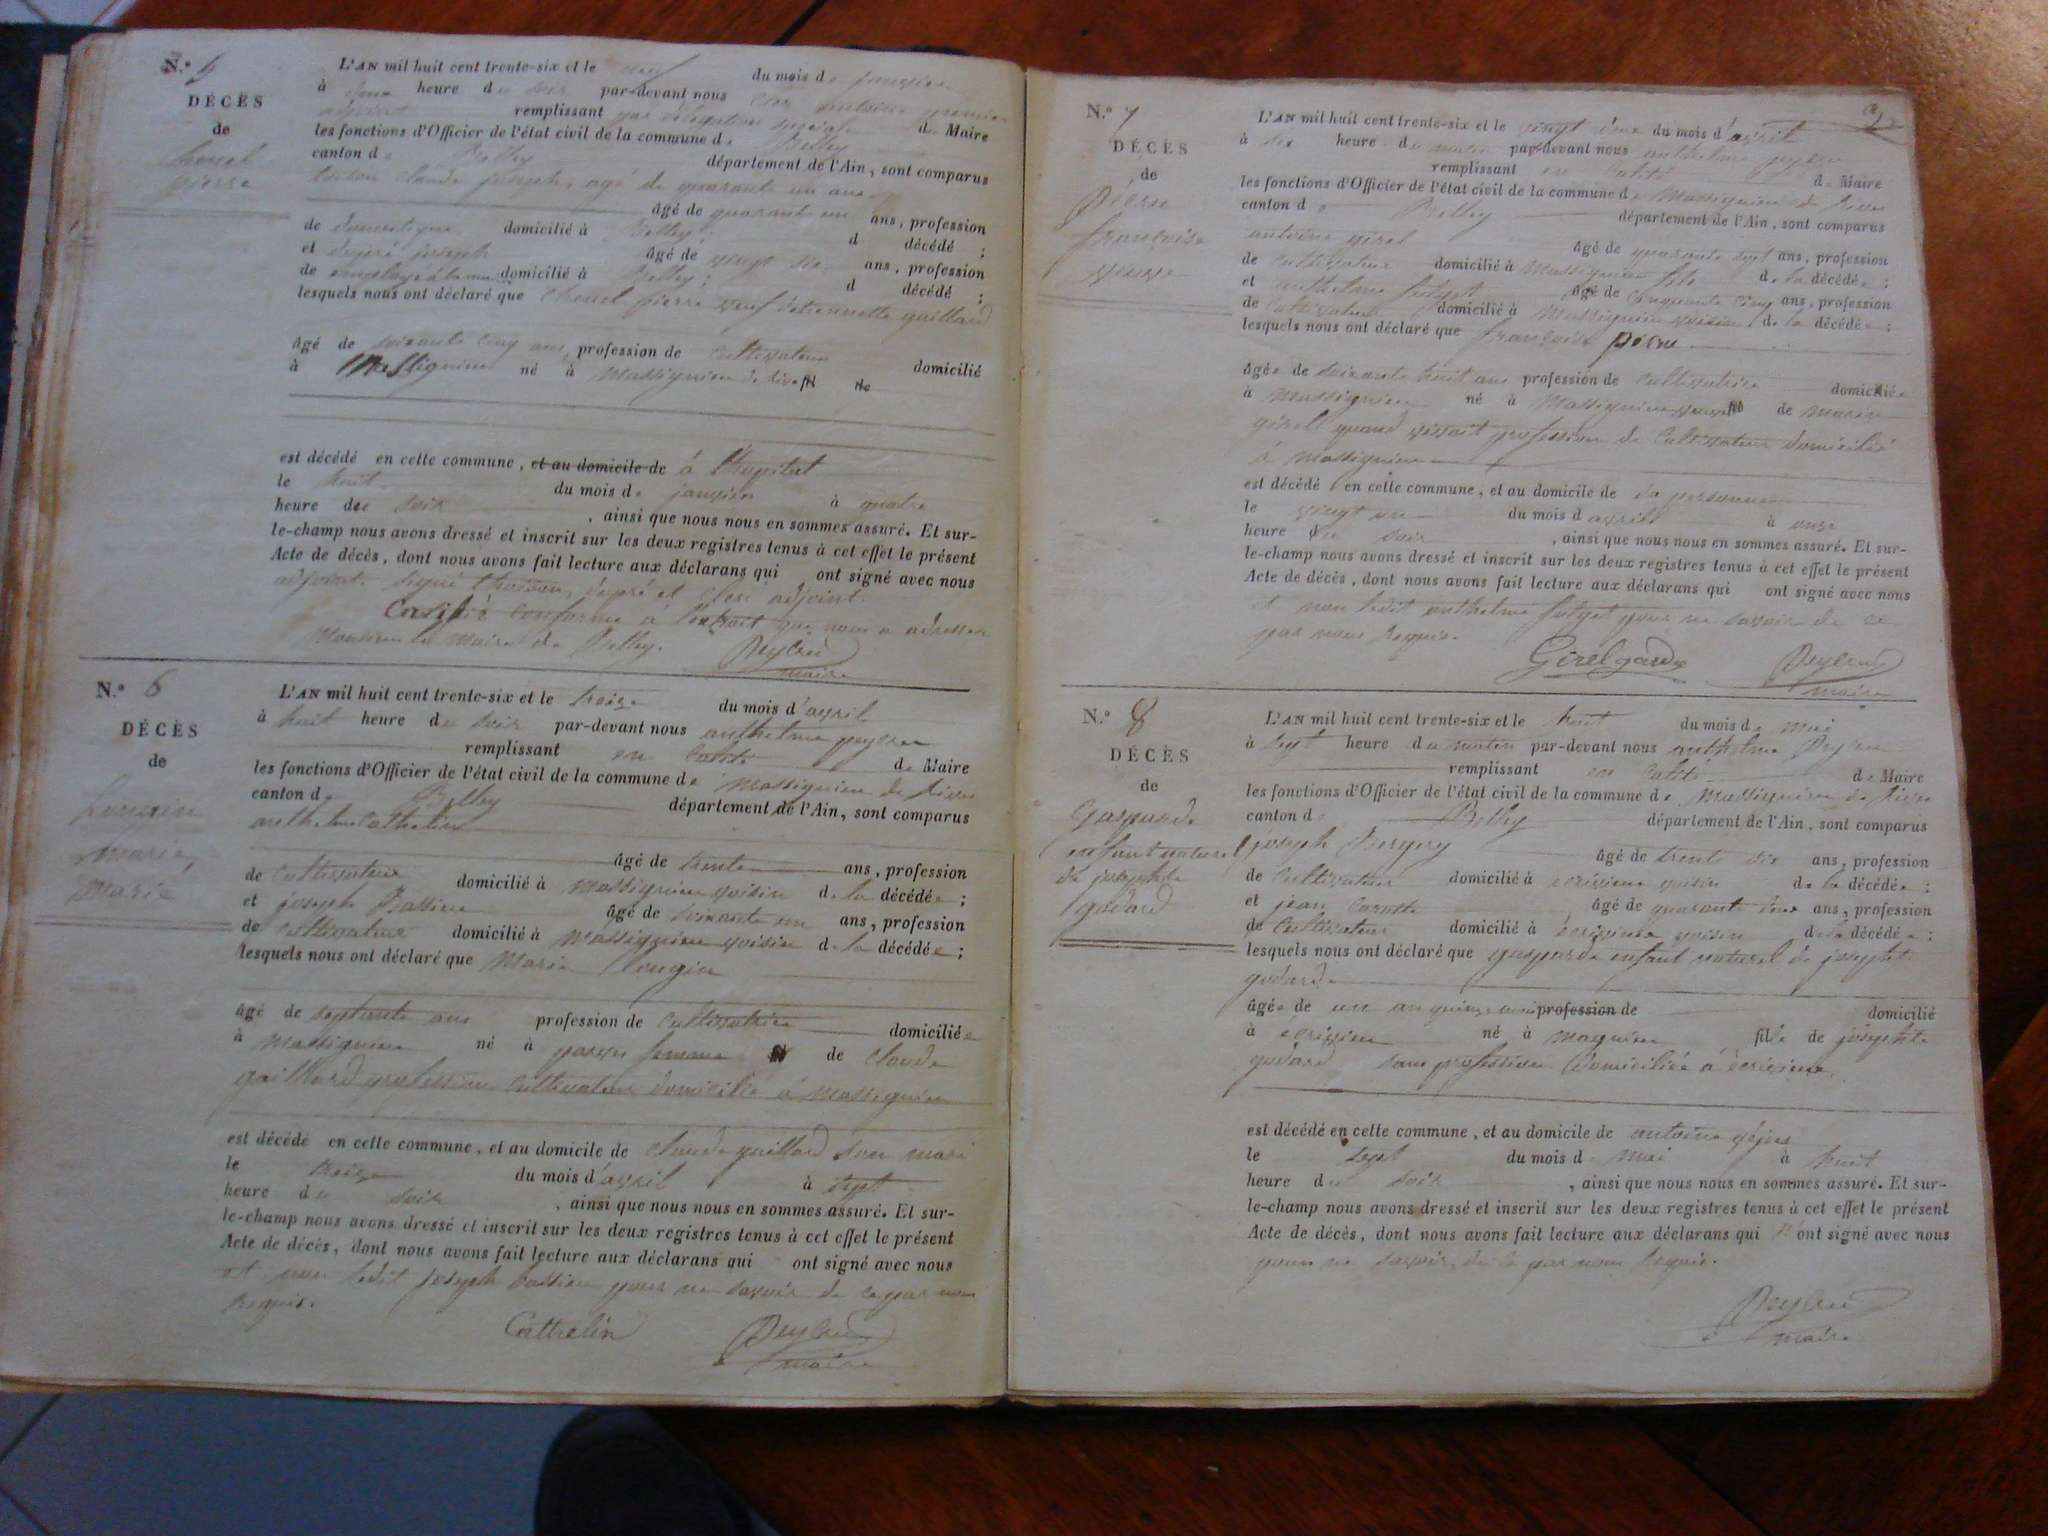 N.o 5
DÉCÈS
de
pierre
L'AN mil huit cent trente-six et le neuf du mois de janvier
à heure du soir par-devant nous antoine premier
adjoint remplissant par délégation spéciale de Maire
les fonctions d'Officier de l'état civil de la commune de Belley
canton de Belley département de l'Ain, sont comparus
claude joseph, agé de quarante un ans
âgé de quarante un ans, profession
de domestique domicilié à Belley; d décédé;
et dupré joseph âgé de vingt six ans, profession
de employé à la domicilié à Belley; d décédé;
lesquels nous ont déclaré que pierre veuf d'etiennette gaillard
âgé de soixante cinq ans, profession de cultivateur domicilié
à Massignieu né à Massignieu de rives de
est décédé en cette commune, et au domicile de à l'hopital
le huit du mois de janvier à quatre
heure du soir, ainsi que nous nous en sommes assuré. Et sur-
le-champ nous avons dressé et inscrit sur les deux registres tenus à cet effet le présent
Acte de décès, dont nous avons fait lecture aux déclarans qui ont signé avec nous
adjoint. signé dupré et adjoint.
Certifié conforme à l'extrait que nous a adressé
Monsieur le maire de Belley.
maire
N.o 6
DÉCÈS
de
Marie,
L'AN mil huit cent trente-six et le treize du mois d'avril
à huit heure du soir par-devant nous anthelme peysson
remplissant en calité de Maire
les fonctions d'Officier de l'état civil de la commune de Massignieu de rives
canton de Belley département de l'Ain, sont comparus
anthelme Cathelin
âgé de trente ans, profession
de cultivateur domicilié à Massignieu voisin de la décédée;
et joseph Bassieu âgé de soixante un ans, profession
de cultivateur domicilié à Massignieu voisin de la décédée;
lesquels nous ont déclaré que Marie
âgé de septante ans profession de cultivatrice domiciliée
à Massignieu né à femme de claude
gaillard profession cultivateur domicilié à Massignieu
est décédé en cette commune, et au domicile de claude gaillard son mari
le treize du mois d'avril à sept
heure du soir, ainsi que nous nous en sommes assuré. Et sur-
le-champ nous avons dressé et inscrit sur les deux registres tenus à cet effet le présent
Acte de décès, dont nous avons fait lecture aux déclarans qui ont signé avec nous
et non ledit joseph bassieu pour ne savoir de ce par nous
requis.
Cathelin
maire
N.o 7
DÉCÈS
de
françoise
veuve
L'AN mil huit cent trente-six et le vingt deux du mois d'avril
à six heure du matin par-devant nous anthelme
remplissant en calité de Maire
les fonctions d'Officier de l'état civil de la commune de Massignieu de rives
canton de Belley département de l'Ain, sont comparus
antoine girel âgé de quarante sept ans, profession
de cultivateur domicilié à Massignieu fils de la décédée;
et anthelme âgé de cinquante cinq ans, profession
de cultivateur domicilié à Massignieu voisin de la décédée;
lesquels nous ont déclaré que françoise
âgée de soixante huit ans profession de cultivatrice domiciliée
à Massignieu né à Massignieu veuve de marin
girel quand vivait profession de cultivateur domicilié
à Massignieu
est décédé en cette commune, et au domicile de sa personne
le vingt un du mois d avril à onze
heure du soir, ainsi que nous nous en sommes assuré. Et sur-
le-champ nous avons dressé et inscrit sur les deux registres tenus à cet effet le présent
Acte de décès, dont nous avons fait lecture aux déclarans qui ont signé avec nous
et non ledit anthelme pour ne savoir de ce
par nous requis.
Girel garde
maire
N.o 8
DÉCÈS
de
Gasparde
enfant naturel
de josephte
godard
L'AN mil huit cent trente-six et le huit du mois de mai
à sept heure du matin par-devant nous anthelme
remplissant en calité de Maire
les fonctions d'Officier de l'état civil de la commune de Massignieu de rives
canton de Belley département de l'Ain, sont comparus
joseph âgé de trente six ans, profession
de cultivateur domicilié à écrivieu voisin de la décédée;
et jean âgé de quarante deux ans, profession
de cultivateur domicilié à écrivieu voisin de la décédée;
lesquels nous ont déclaré que gasparde enfant naturel de josephte
godard
âgée de un an quinze mois profession de domicilié
à écrivieu né à fille de josephte
godard sans profession domiciliée à écrivieu
est décédé en cette commune, et au domicile de antoine
le sept du mois de mai à huit
heure du soir, ainsi que nous nous en sommes assuré. Et sur-
le-champ nous avons dressé et inscrit sur les deux registres tenus à cet effet le présent
Acte de décès, dont nous avons fait lecture aux déclarans qui n'ont signé avec nous
pour ne savoir, de ce par nous requis.
maire